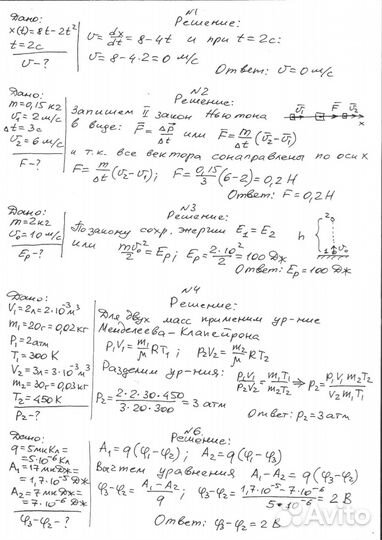 №1
Дано:
x(t)=8t-2t²
t=2c
v-?
Решение:
v=dx/dt=8-4t и при t=2c:
v=8-4·2=0 м/с
Ответ: v=0 м/с
№2
Дано:
m=0,15кг
v₁=2м/с
Δt=3с
v₂=6м/с
F-?
Решение:
Запишем II закон Ньютона
в виде: F̅=Δp̅/Δt или F̅=m/Δt(v̅₂-v̅₁)
v̅₁ F̅ v̅₂ x
и т.к. все вектора сонаправлены по оси x
F=m/Δt(v₂-v₁); F=0,15/3(6-2)=0,2Н
Ответ: F=0,2Н
№3
Дано:
m=2кг
v₀=10м/с
Eр-?
Решение:
По закону сохр. энергии E₁=E₂
или mv₀²/2=Eр; Eр=2·10²/2=100Дж
h 2 v̅₀ 1
Ответ: Eр=100Дж
№4
Дано:
V₁=2л=2·10⁻³м³
m₁=20г=0,02кг
P₁=2атм
T₁=300К
V₂=3л=3·10⁻³м³
m₂=30г=0,03кг
T₂=450К
P₂-?
Решение:
Для двух масс применим ур-ние
Менделеева-Клапейрона
P₁V₁=m₁/μ RT₁; P₂V₂=m₂/μ RT₂
Разделим ур-ния: P₁V₁/P₂V₂=m₁T₁/m₂T₂ ⇒ P₂=P₁V₁m₂T₂/V₂m₁T₁
P₂=2·2·30·450/3·20·300=3атм
Ответ: P₂=3атм
№6
Дано:
q=5мкКл=
=5·10⁻⁶Кл
A₁=17мкДж=
=1,7·10⁻⁵Дж
A₂=7мкДж=
=7·10⁻⁶Дж
φ₃-φ₂-?
Решение:
A₁=q(φ₁-φ₂); A₂=q(φ₁-φ₃)
Вычтем уравнения A₁-A₂=q(φ₃-φ₂)
φ₃-φ₂=A₁-A₂/q; φ₃-φ₂=1,7·10⁻⁵-7·10⁻⁶/5·10⁻⁶=2В
Ответ: φ₃-φ₂=2В
Avito